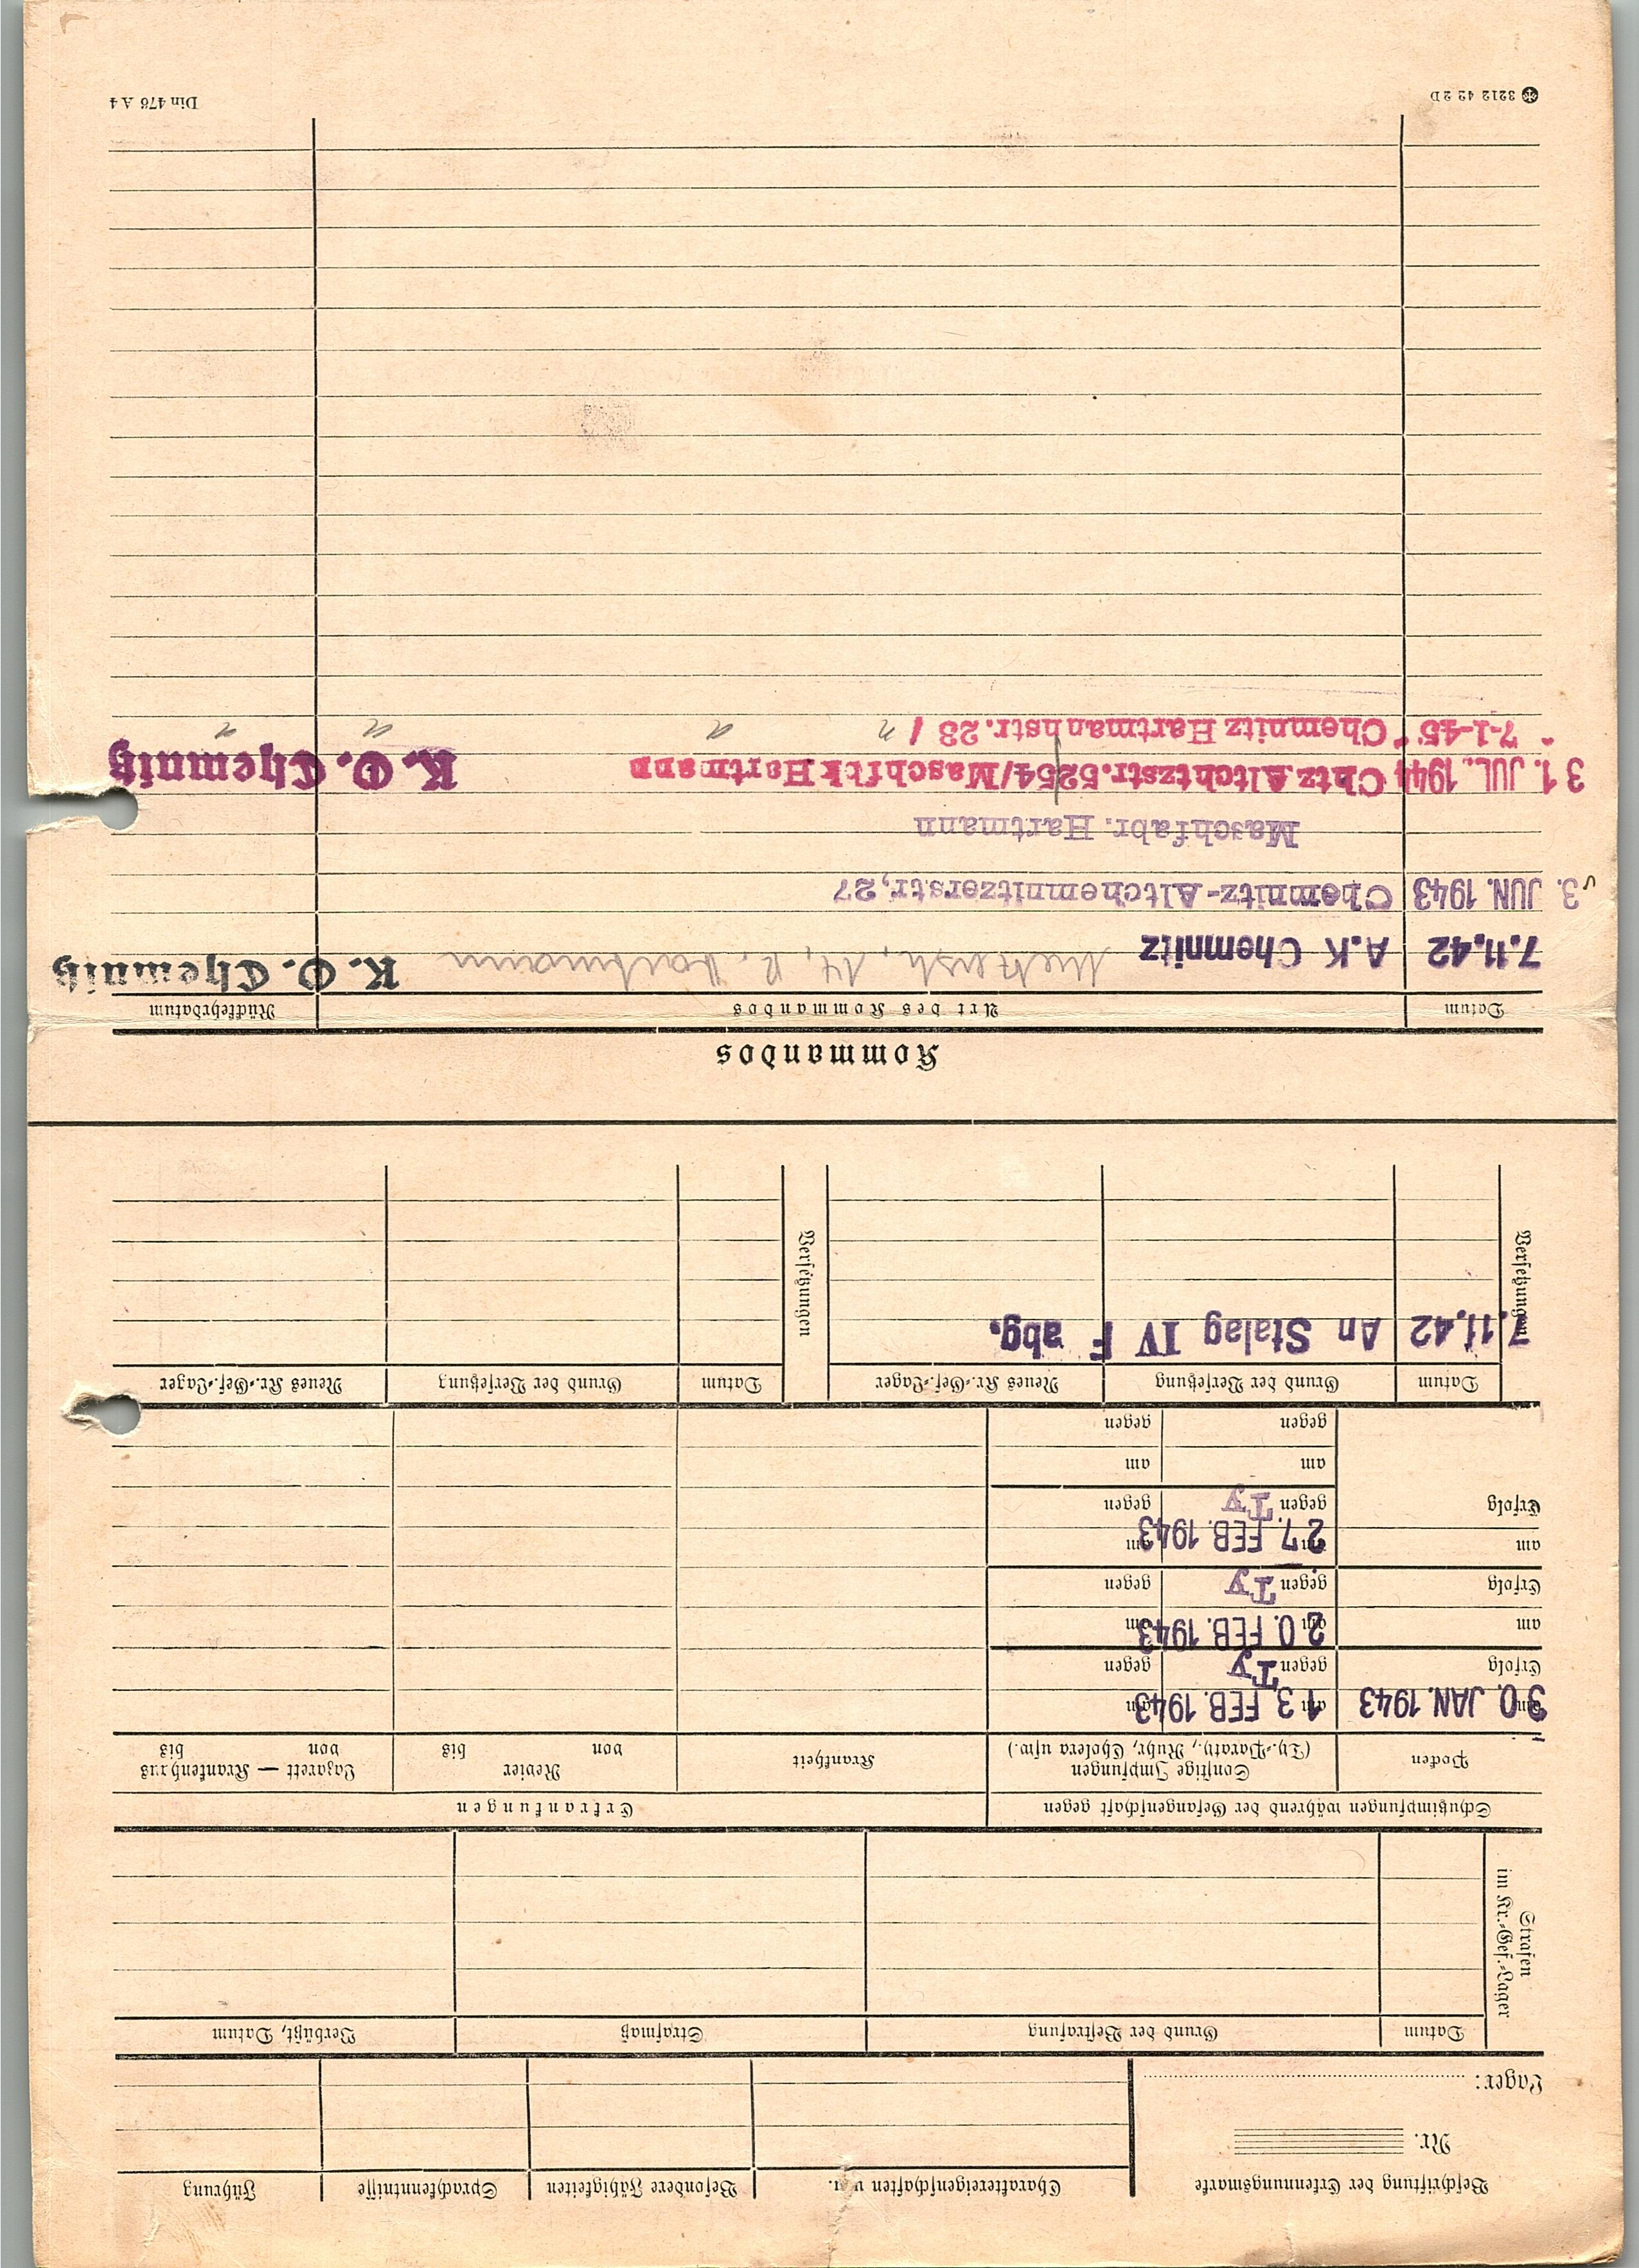 Beschriftung der Erkennungsmarke
Nr.
Lager:
Charaktereigenschaften u. a.
Besondere Fähigkeiten
Sprachkenntnisse
Führung
Strafen
im Kr.-Gef.-Lager
Datum
Grund der Bestrafung
Strafmaß
Verbüßt, Datum
Schutzimpfungen während der Gefangenschaft gegen
Erkrankungen
Pocken
Sonstige Impfungen
(Ty.-Paraty., Ruhr, Cholera usw.)
Krankheit
Revier
von bis
Lazarett — Krankenhaus
von bis
am 30. JAN. 1943
Erfolg
am 13. FEB. 1943
gegen Ty
am
gegen
am
Erfolg
am 20. FEB. 1943
gegen Ty
am
gegen
am
Erfolg
am 27. FEB. 1943
gegen Ty
am
gegen
am
gegen
am
gegen
Versetzungen
Datum
Grund der Versetzung
Neues Kr.-Gef.-Lager
7.11.42 An Stalag IV F abg.
Versetzungen
Datum
Grund der Versetzung
Neues Kr.-Gef.-Lager
Kommandos
Datum
Art des Kommandos
Rückkehrdatum
7.11.42 A.K Chemnitz 14, R. Hartmann K. O. Chemnitz
3. JUN. 1943 Chemnitz-Altchemnitzerstr,27
Maschfabr. Hartmann
31. JUL. 1944 Chtz Altchtzstr.5254/Maschfbk Hartmann K. O. Chemnitz
" 7-1-45 " Chemnitz Hartmannstr.23 / " " " "
3212 42 2D
Din 476 A 4